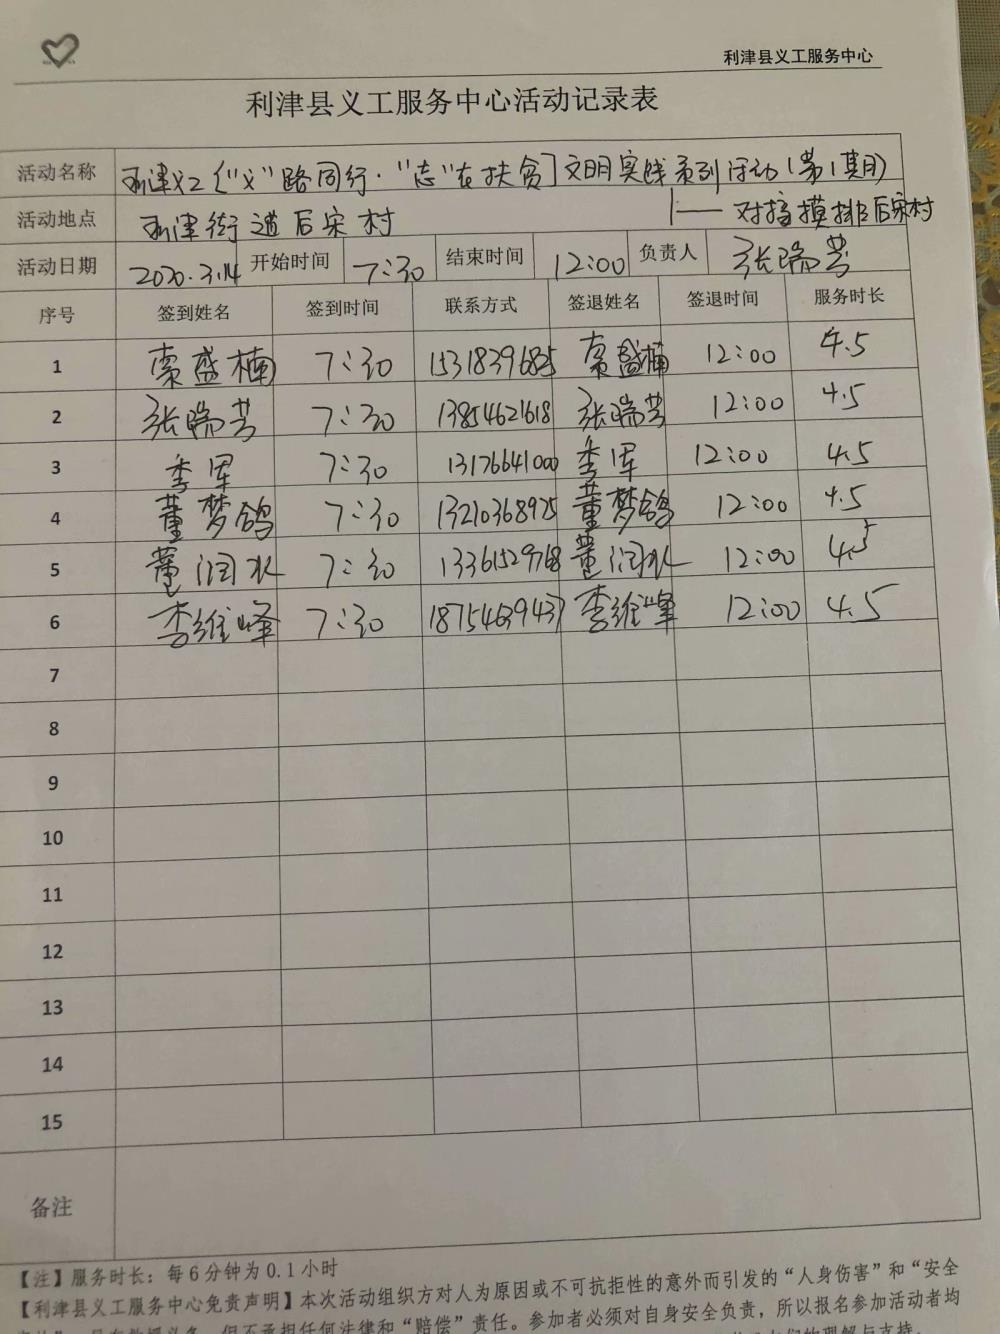 利津县义工服务中心
利津县义工服务中心活动记录表
活动名称 利津义工〔“义”路同行·“志”在扶贫〕文明实践系列活动(第1期)
——对接摸排后宋村
活动地点 利津街道后宋村
活动日期 2020.3.14 开始时间 7:30 结束时间 12:00 负责人 张瑞芳
序号 签到姓名 签到时间 联系方式 签退姓名 签退时间 服务时长
1 盛楠 7:30 盛楠 12:00 4.5
2 张瑞芳 7:30 13854621618 张瑞芳 12:00 4.5
3 李军 7:30 13176641000 李军 12:00 4.5
4 董梦鸽 7:30 13210368925 董梦鸽 12:00 4.5
5 董润水 7:30 13361529768 董润水 12:00 4.5
6 李维峰 7:30 李维峰 12:00 4.5
7
8
9
10
11
12
13
14
15
备注
【注】服务时长：每6分钟为0.1小时
【利津县义工服务中心免责声明】本次活动组织方对人为原因或不可抗拒性的意外而引发的“人身伤害”和“安全
但不承担任何法律和“赔偿”责任。参加者必须对自身安全负责，所以报名参加活动者均